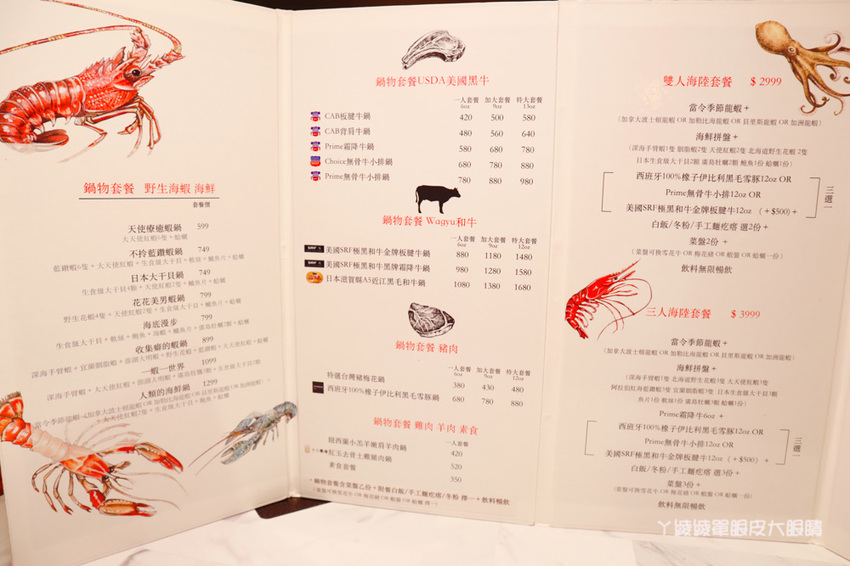 鍋物套餐 野生海蝦 海鮮
套餐價
天使療癒蝦鍋 599
大天使紅蝦6隻+蛤蠣
不拎藍鑽蝦鍋 749
日本大干貝鍋 749
花花美男蝦鍋 799
海底漫步 799
收集癖的蝦鍋 899
一蝦一世界 1099
人類的海鮮鍋 1299
鍋物套餐USDA美國黑牛
一人套餐 加大套餐 特大套餐
6oz 9oz 13oz
CAB板腱牛鍋 420 500 580
CAB背肩牛鍋 480 560 640
Prime霜降牛鍋 580 680 780
Choice無骨牛小排鍋 680 780 880
Prime無骨牛小排鍋 780 880 980
鍋物套餐 Wagyu和牛
一人套餐 加大套餐 特大套餐
6oz 9oz 12oz
美國SRF極黑和牛金牌板腱牛鍋 880 1180 1480
美國SRF極黑和牛黑牌霜降牛鍋 980 1280 1580
日本滋賀縣A5近江黑毛和牛鍋 1080 1380 1680
鍋物套餐 豬肉
一人套餐 加大套餐 特大套餐
6oz 9oz 12oz
特選台灣豬梅花鍋 380 430 480
西班牙100%橡子伊比利黑毛雪豚鍋 680 780 880
鍋物套餐 雞肉 羊肉 素食
一人套餐
紐西蘭小羔羊嫩肩羊肉鍋 420
紅玉去骨土雞腿肉鍋 520
素食套餐 350
・鍋物套餐含菜盤乙份+附餐白飯/手工麵疙瘩/冬粉 擇一+飲料暢飲
雙人海陸套餐 $ 2999
當令季節龍蝦+
(加拿大波士頓龍蝦 OR 加勒比海龍蝦 OR 貝里斯龍蝦 OR 加洲龍蝦)
海鮮拼盤+
(深海手臂蝦1隻 胭脂蝦2隻 天使紅蝦2隻 北海道野生花蝦 2隻
日本生食級大干貝2顆 廣島牡蠣2顆 鮑魚1份 蛤蠣1份)
西班牙100%橡子伊比利黑毛雪豚12oz OR
Prime無骨牛小排12oz OR
美國SRF極黑和牛金牌板腱牛12oz (+$500)+
三選一
白飯/冬粉/手工麵疙瘩 選2份+
菜盤2份+
(菜盤可換雪花牛 OR 梅花豬 OR 蝦盤 OR 蛤蠣一份)
飲料無限暢飲
三人海陸套餐 $ 3999
當令季節龍蝦+
(加拿大波士頓龍蝦 OR 加勒比海龍蝦 OR 貝里斯龍蝦 OR 加洲龍蝦)
海鮮拼盤+
Prime霜降牛6oz +
西班牙100%橡子伊比利黑毛雪豚12oz OR
Prime無骨牛小排12oz OR
美國SRF極黑和牛金牌板腱牛12oz (+$500)+
三選一
白飯/冬粉/手工麵疙瘩 選3份+
菜盤3份+
(菜盤可換雪花牛 OR 梅花豬 OR 蝦盤 OR 蛤蠣一份)
飲料無限暢飲
ㄚ淩淩單眼皮大眼睛